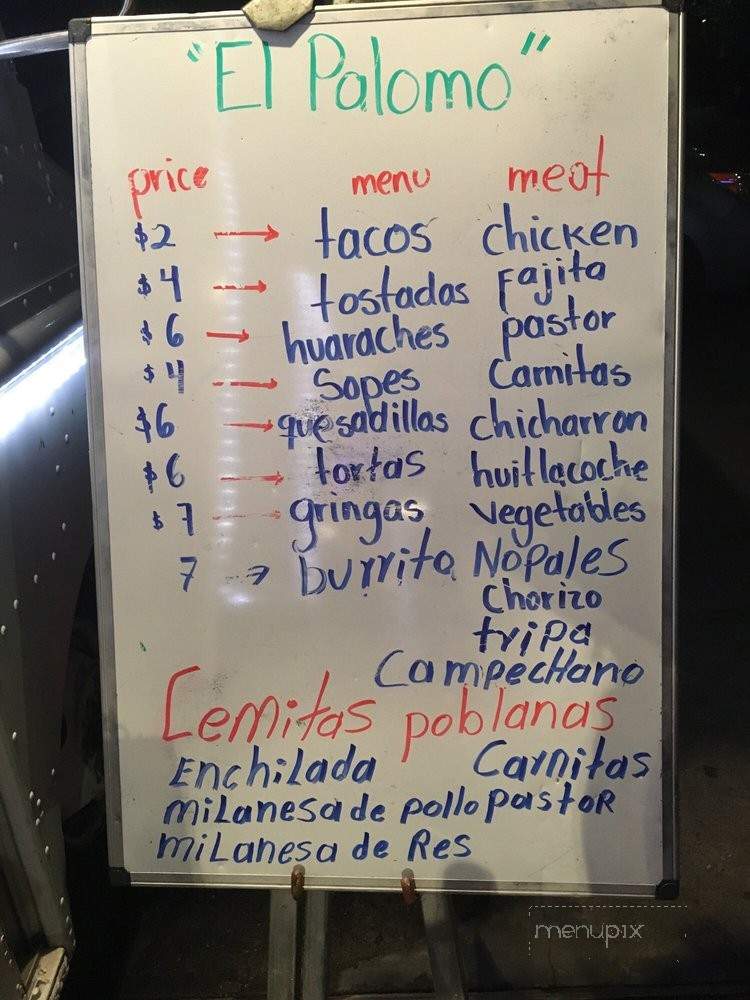 "El Palomo"
price menu meat
$2 → tacos chicken
$4 → tostadas Fajita
$6 → huaraches pastor
$4 → Sopes Carnitas
$6 → quesadillas chicharron
$6 → tortas huitlacoche
$7 → gringas vegetables
7 → burrito NoPaleS
Chorizo
tripa
CampecHano
Cemitas poblanas
Enchilada Carnitas
miLanesa de pollo pastoR
miLanesa de Res
menupix